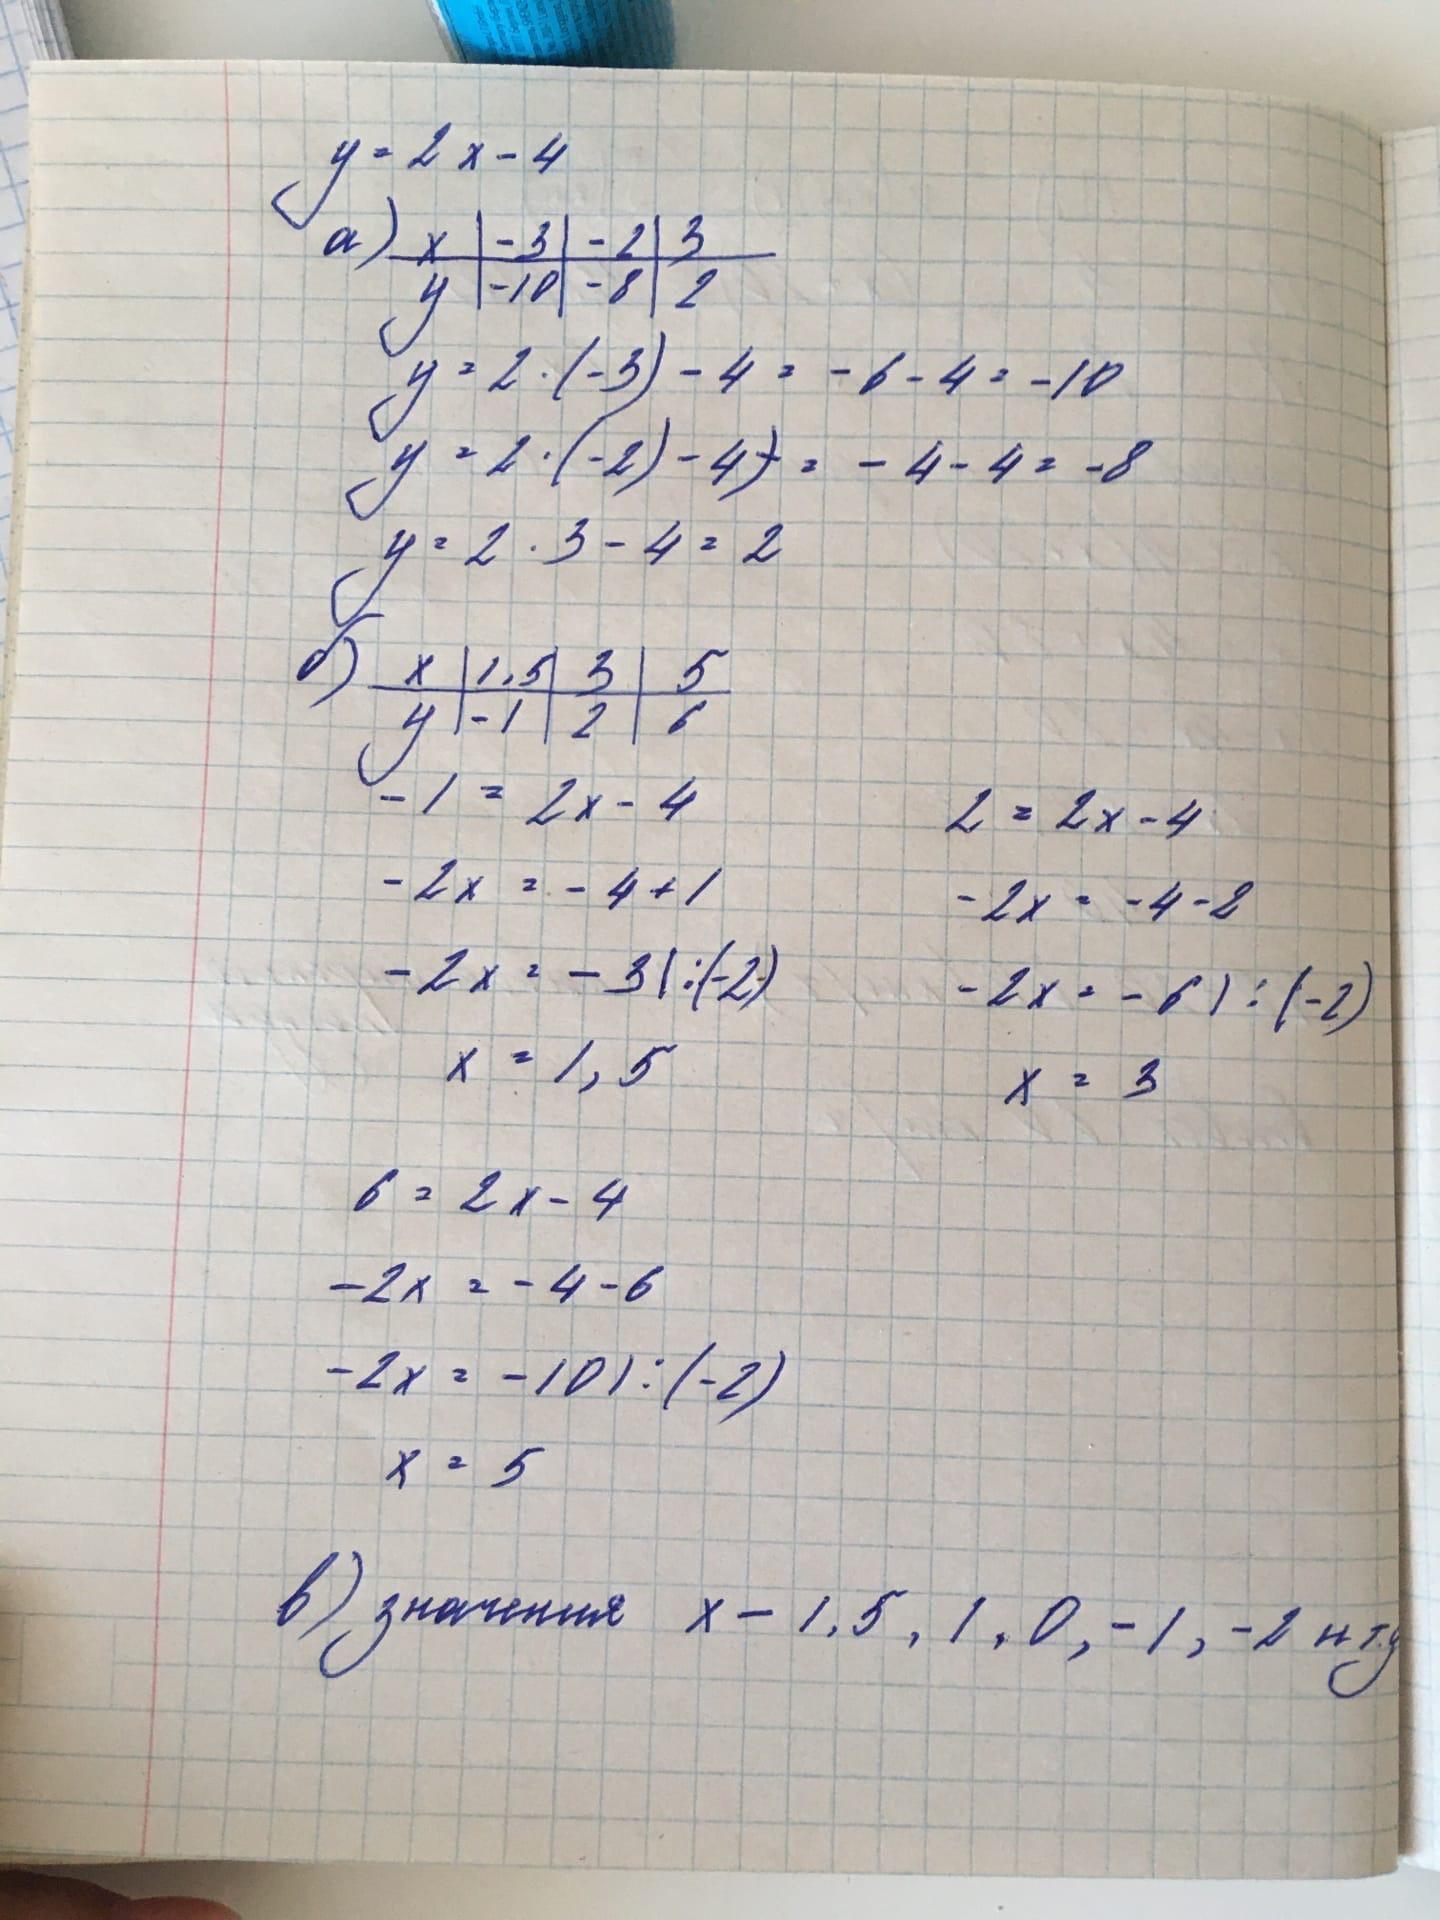 y = 2x - 4
а) x | -3 | -2 | 3
y | -10 | -8 | 2
y = 2 · (-3) - 4 = -6 - 4 = -10
y = 2 · (-2) - 4) = -4 - 4 = -8
y = 2 · 3 - 4 = 2
б) x | 1,5 | 3 | 5
y | -1 | 2 | 6
-1 = 2x - 4
-2x = -4 + 1
-2x = -3 | :(-2)
x = 1,5
2 = 2x - 4
-2x = -4 - 2
-2x = -6 | : (-2)
x = 3
6 = 2x - 4
-2x = -4 - 6
-2x = -10 | : (-2)
x = 5
в) значения x - 1,5, 1, 0, -1, -2 и т.д